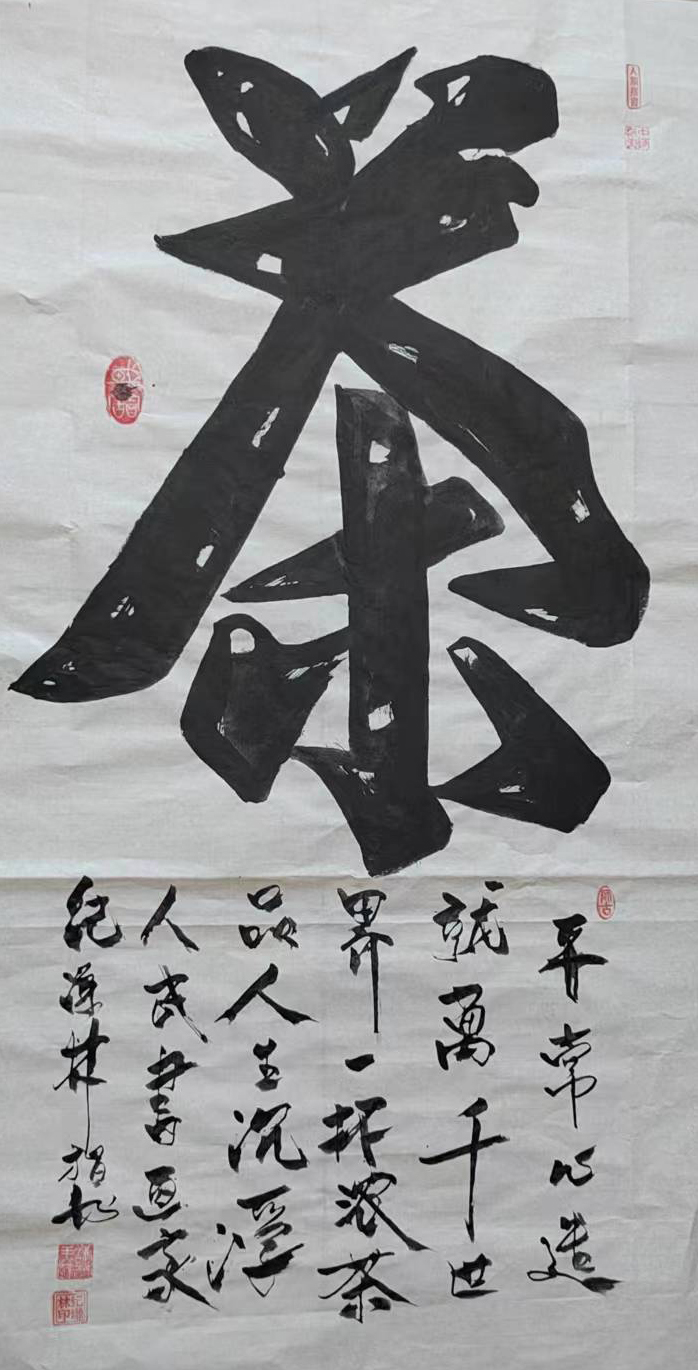 茶
平常心造
就萬千世
界一杯浓茶
品人生沉浮
人民書画家
纪泽林